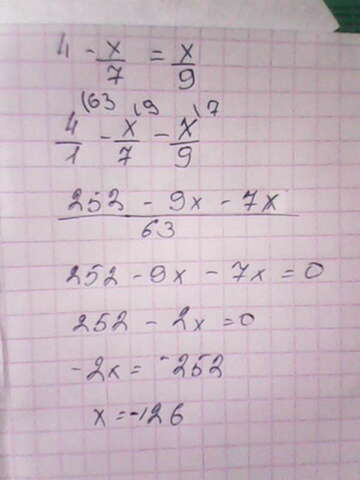 4 - x/7 = x/9
4/1 \63 - x/7 \9 - x/9 \7
252 - 9x - 7x / 63
252 - 9x - 7x = 0
252 - 2x = 0
-2x = -252
x = -126